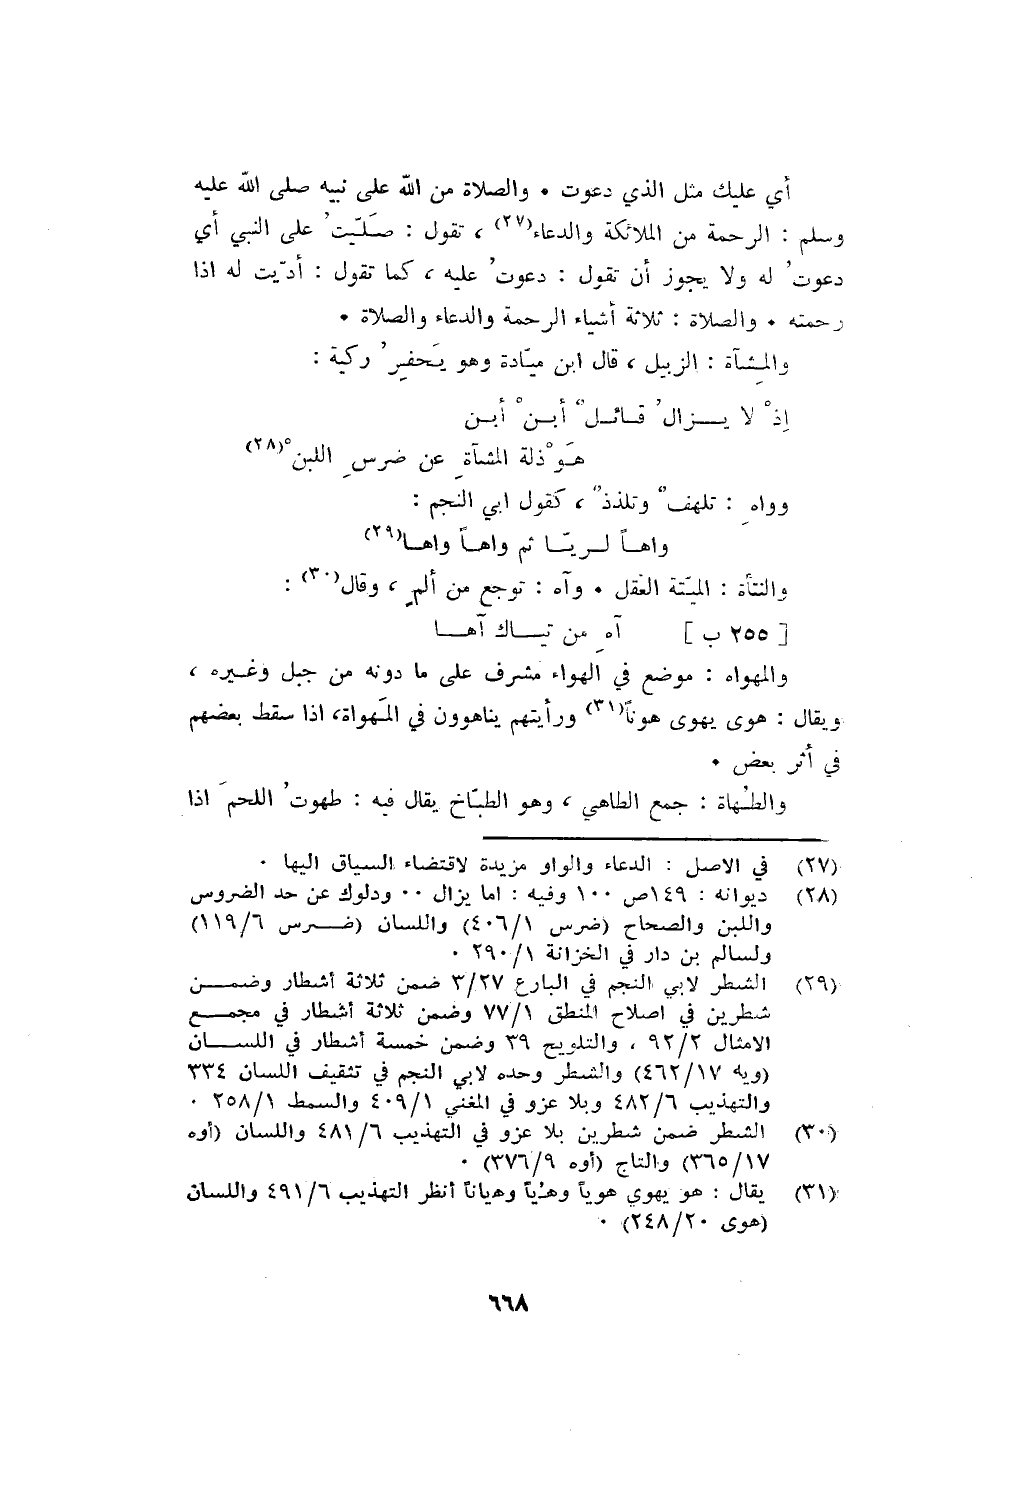 أي عليك مثل الذي دعوت • والصلاة من الله على نبيه صلى الله عليه
وسلم : الرحمة من الملائكة والدعاء(٢٧) ، تقول : صَلّيتُ على النبي أي
دعوتُ له ولا يجوز أن تقول : دعوتُ عليه ، كما تقول : أدّيت له اذا
رحمته • والصلاة : ثلاثة أشياء الرحمة والدعاء والصلاة •
والمِشآة : الزبيل ، قال ابن ميّادة وهو يَحفِرُ ركية :
إذْ لا يــزالُ قــائــلٌ أبــنْ أبــن
هَوْذلة المشآةِ عن ضرسِ اللبنْ(٢٨)
وواهِ : تلهفٌ وتلذذٌ ، كقول ابي النجم :
واهــاً لــريّــا ثم واهــاً واهــا(٢٩)
والتأة : الميّتة العَقل • وآه : توجع من ألمٍ ، وقال(٣٠) :
[ ٢٥٥ ب ] آهِ من تيــاك آهــا
والمهواه : موضع في الهواء مشرف على ما دونه من جبل وغيره ،
ويقال : هوى يهوى هوناً(٣١) ورأيتهم يتاهوون في المَهواة، اذا سقط بعضهم
في أثر بعض •
والطُهاة : جمع الطاهي ، وهو الطبّاخ يقال فيه : طهوتُ اللحمَ اذا
(٢٧) في الاصل : الدعاء والواو مزيدة لاقتضاء السياق اليها ٠
(٢٨) ديوانه : ١٤٩ص ١٠٠ وفيه : اما يزال ٠٠ ودلوك عن حد الضروس
واللبن والصحاح (ضرس ٤٠٦/١) واللسان (ضــرس ١١٩/٦)
ولسالم بن دار في الخزانة ٢٩٠/١ ٠
(٢٩) الشطر لابي النجم في البارع ٣/٢٧ ضمن ثلاثة أشطار وضمــن
شطرين في اصلاح المنطق ٧٧/١ وضمن ثلاثة أشطار في مجمــع
الامثال ٩٢/٢ ، والتلويح ٣٩ وضمن خمسة أشطار في اللســان
(ويه ٤٦٢/١٧) والشطر وحده لابي النجم في تثقيف اللسان ٣٣٤
والتهذيب ٤٨٢/٦ وبلا عزو في المغني ٤٠٩/١ والسمط ٢٥٨/١ ٠
(٣٠) الشطر ضمن شطرين بلا عزو في التهذيب ٤٨١/٦ واللسان (أوه
٣٦٥/١٧) والتاج (أوه ٣٧٦/٩) ٠
(٣١) يقال : هو يهوي هوياً وهُيّاً وهياناً أنظر التهذيب ٤٩١/٦ واللسان
(هوى ٢٤٨/٢٠) ٠
٦٦٨